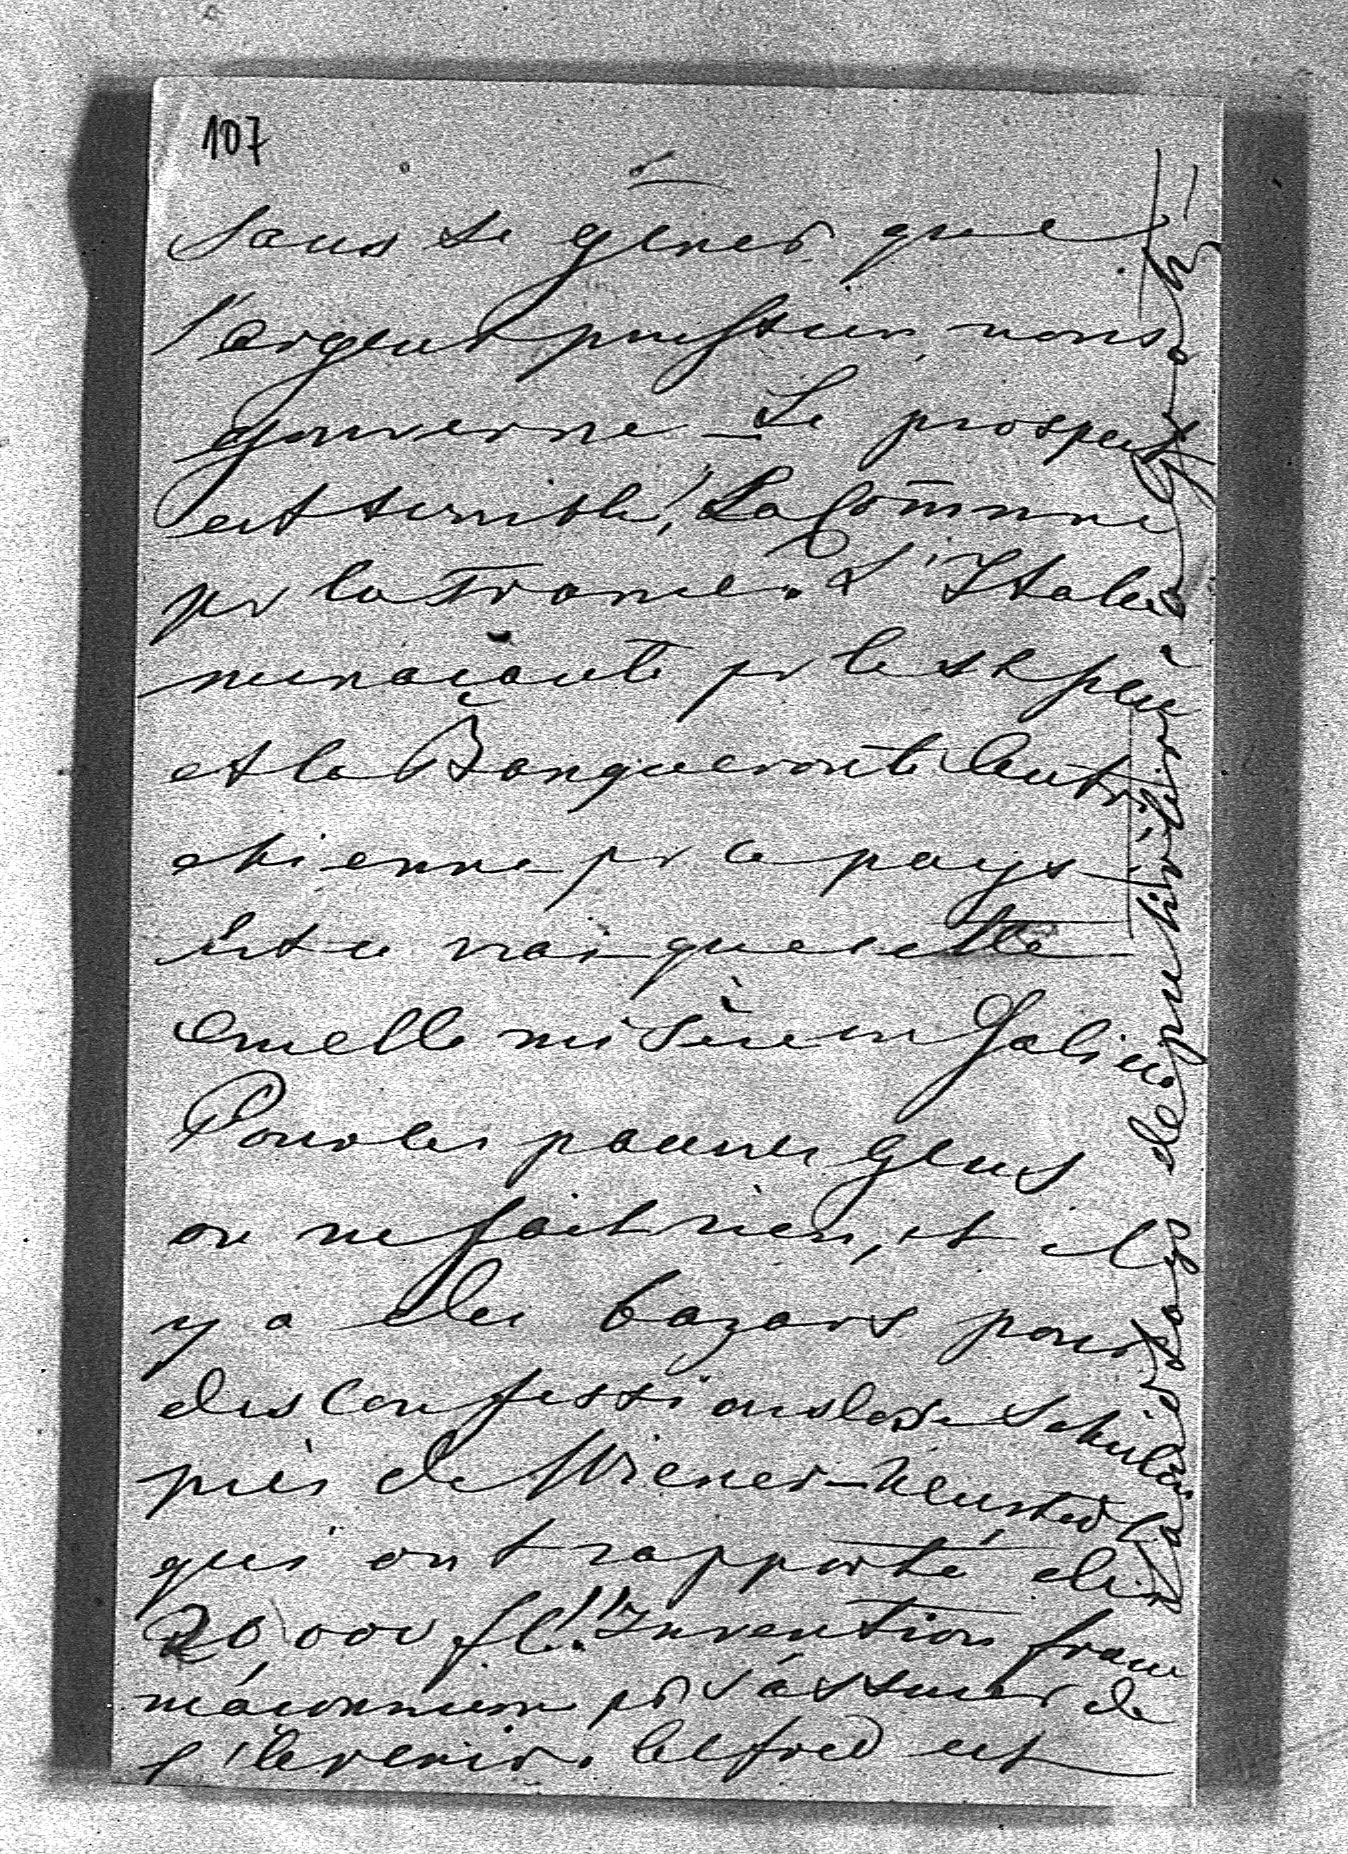 107
sans se gêner que
l'argent prussien nous
gouverne – Le prospect
est terrible! La Com̄une
pr la France. L'Italie
menaçante pr le St père
et la Banqueroute Autri
chienne pr ce pays –
est ce vrai que cette
cruelle misère en Galicie
Pour les pauvres gens
on ne fait rien, et il
y a des bazars pour
des Confessionslose Schulen
près de Wiener-Neustadt
qui ont rapporté dix
20,000 fl!! Invention franc
maçonnienne pr s'assurer de
l'avenir. Alfred est